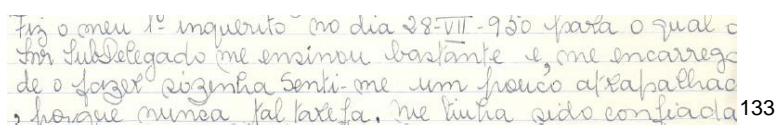 Fiz o meu 1º inquerito no dia 28-VII-950 para o qual o
Snr SubDelegado me ensinou bastante e, me encarrego
de o fazer sózinha Senti-me um pouco atrapalhad
, porque nunca tal tarefa, me tinha sido confiada 133